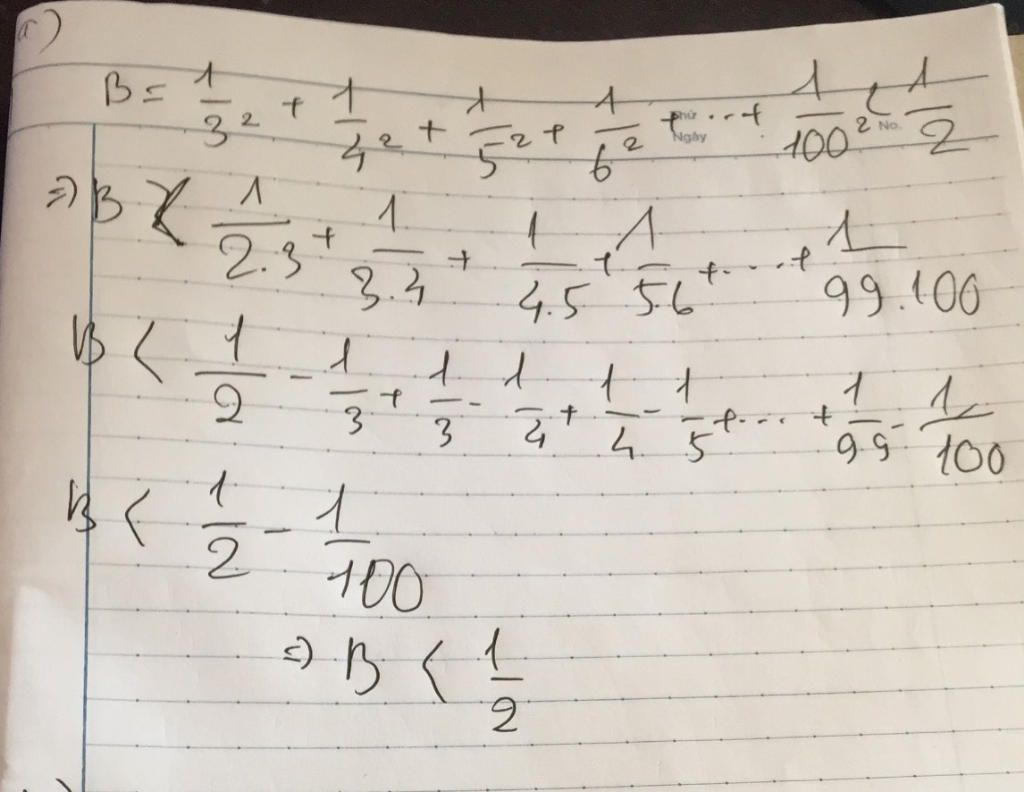 a)
B = 1/3² + 1/4² + 1/5² + 1/6² + ... + 1/100² < 1/2
Thứ
Ngày
No.
=> B < 1/2.3 + 1/3.4 + 1/4.5 + 1/5.6 + .... + 1/99.100
B < 1/2 - 1/3 + 1/3 - 1/4 + 1/4 - 1/5 + ... + 1/99 - 1/100
B < 1/2 - 1/100
=> B < 1/2